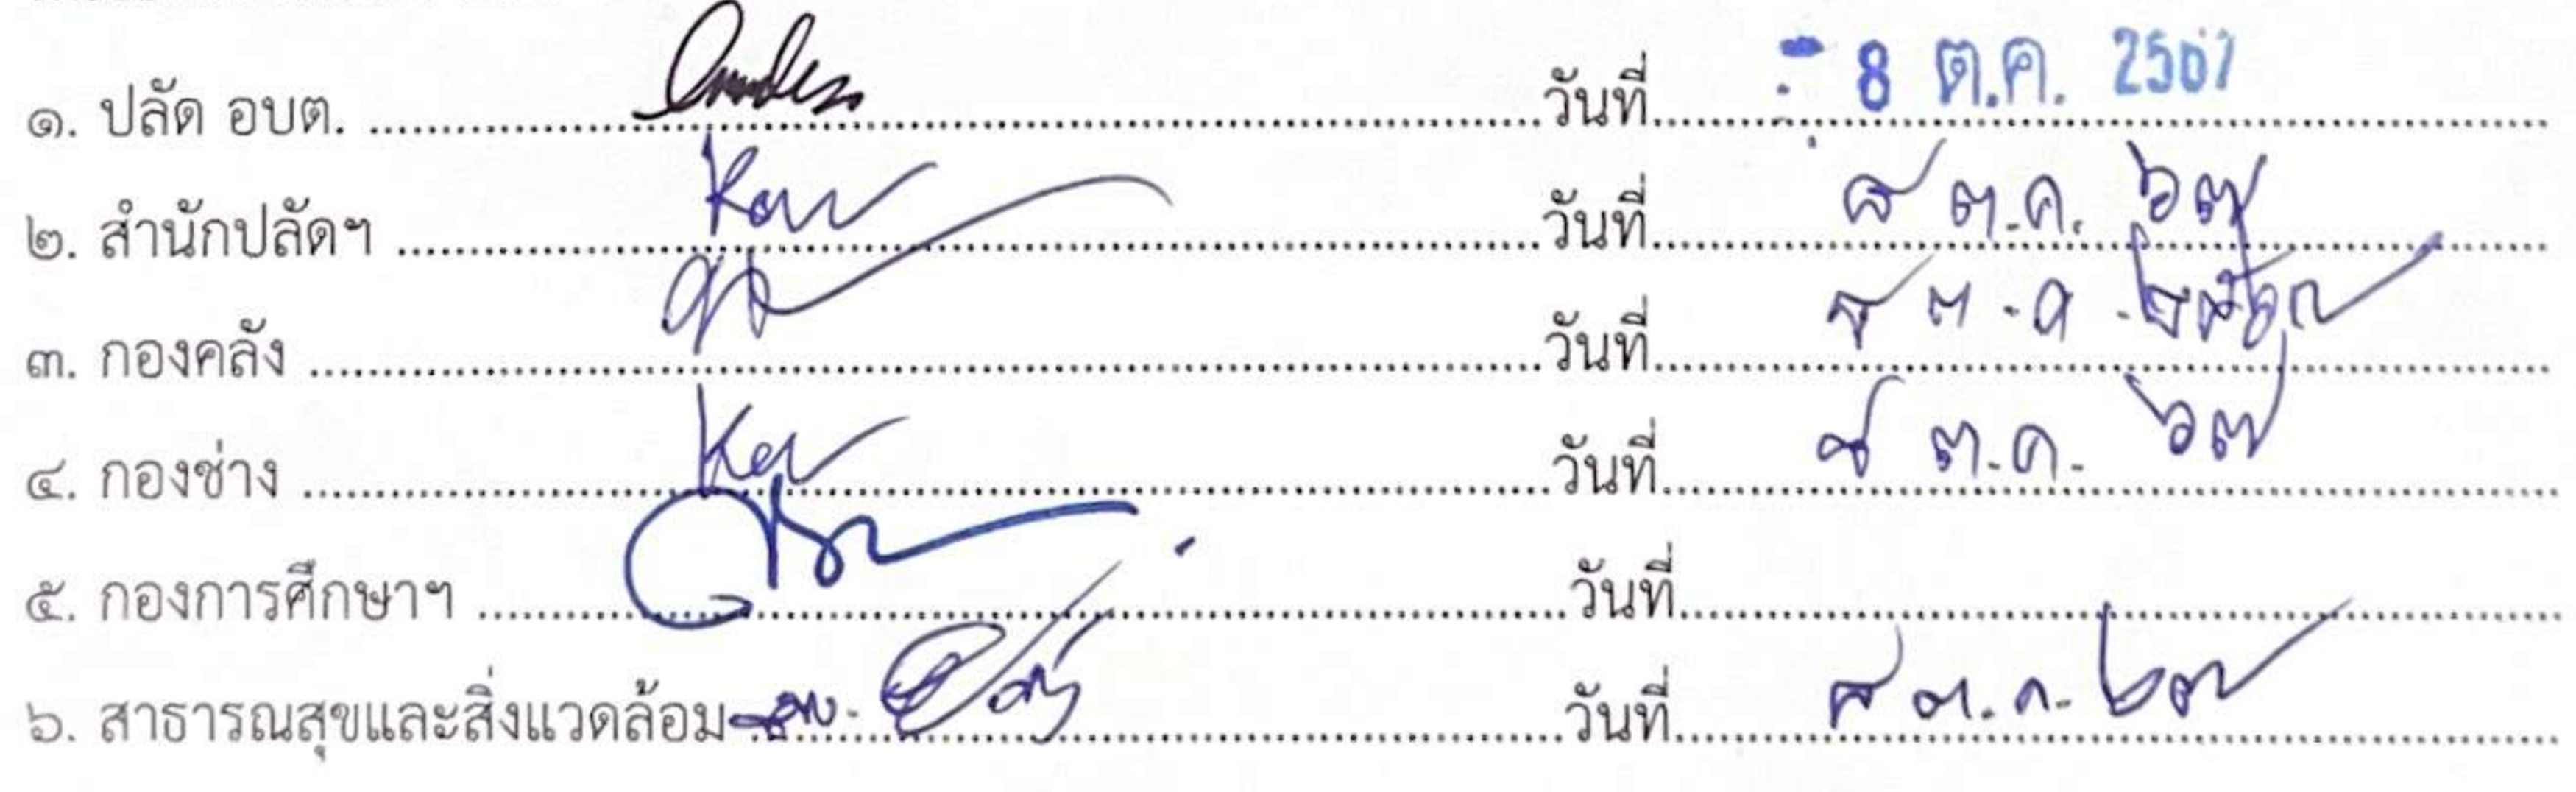 ๑. ปลัด อบต. วันที่ - 8 ต.ค. 2567
๒. สำนักปลัดฯ วันที่ ๘ ต.ค. ๖๗
๓. กองคลัง วันที่ ๘ ต.ค.
๔. กองช่าง วันที่ ๘ ต.ค. ๖๗
๕. กองการศึกษาฯ วันที่
๖. สาธารณสุขและสิ่งแวดล้อม วันที่ ๘ ต.ค. ๖๗